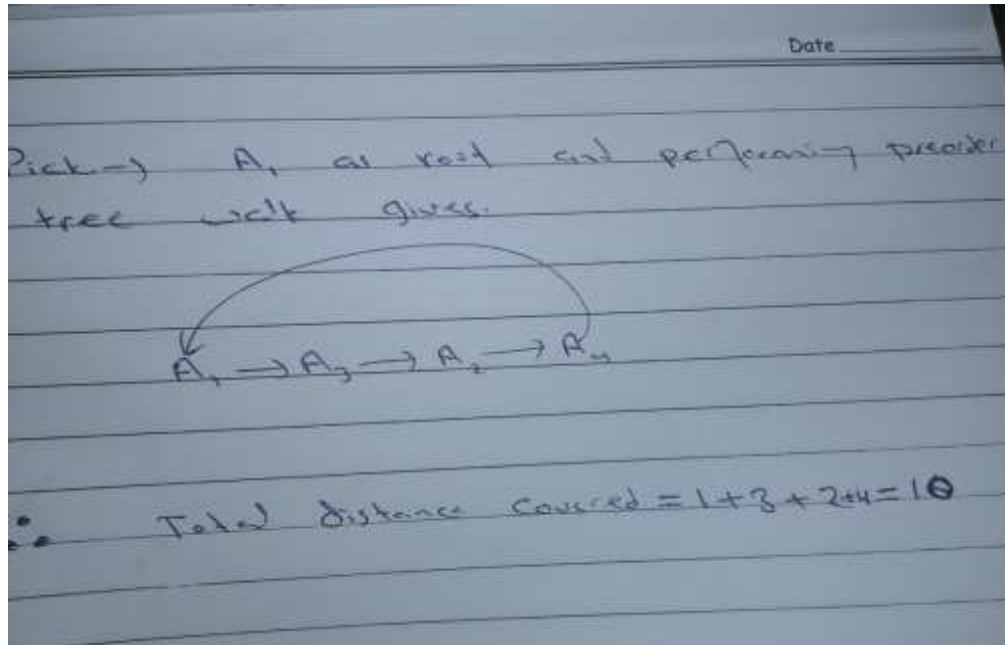 Date
Pick → A₁ as root and performing preorder
tree walk gives.
A₁ → A₃ → A₂ → A₄
∴ Total distance covered = 1+3+2+4=10